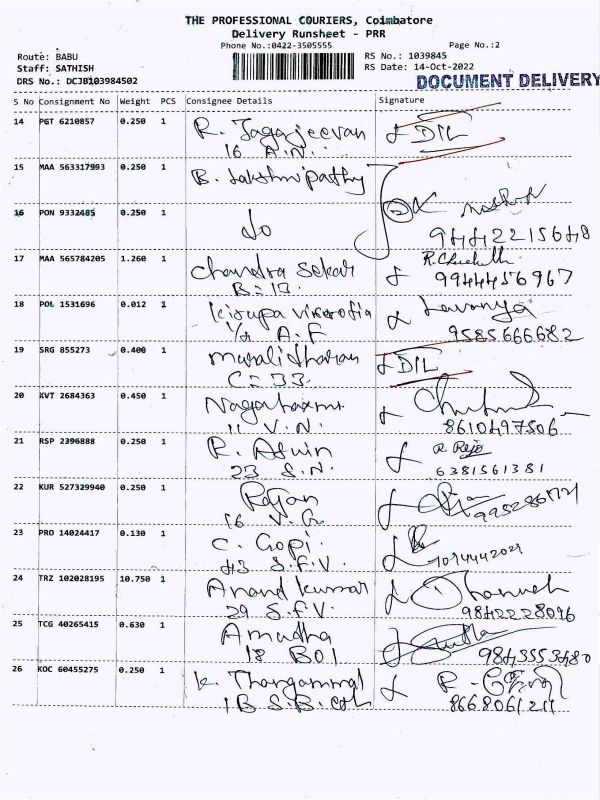 THE PROFESSIONAL COURIERS, Coimbatore
Delivery Runsheet - PRR
Phone No.:0422-3505555 Page No.:2
Route: BABU RS No.: 1039845
Staff: SATHISH RS Date: 14-Oct-2022
DRS No.: DCJB103984502 DOCUMENT DELIVERY
S No Consignment No Weight PCS Consignee Details Signature
14 PGT 6210857 0.250 1 R. Jagajeevan DIL
16 A.N.
15 MAA 563317993 0.250 1 B. Lakshmipathy
16 PON 9332485 0.250 1 do
9442215648
17 MAA 565784205 1.260 1 Chandra Sekar
B-13. 9944456967
18 POL 1531696 0.012 1 Lavanya
A.F 9585666682
19 SRG 855273 0.400 1 Muralidharan DIL
C-33.
20 KVT 2684363 0.450 1
11 V.N. 8610497506
21 RSP 2396888 0.250 1 R. Aswin
23 S.N. 6381561381
22 KUR 527329940 0.250 1 Rajan
16 V.G
23 PRO 14024417 0.130 1 C. Gopi
43 S.F.V.
24 TRZ 102028195 10.750 1 Anand kumar
29 S.F.V. 9842228096
25 TCG 40265415 0.630 1 Amudha
18 B01 9843553480
26 KOC 60455275 0.250 1 K. Thangammal
1B S.B. 8668061211